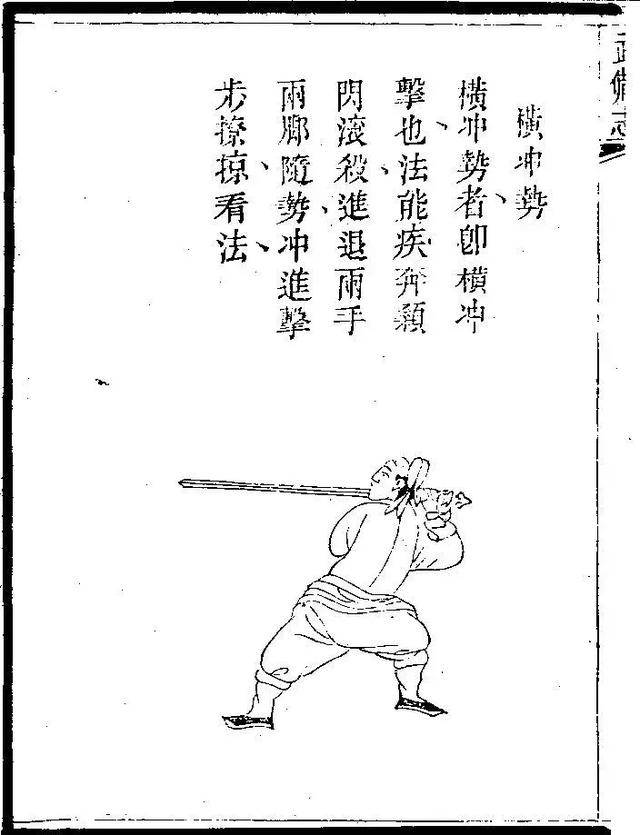 武備志
橫冲勢
橫冲勢者卽橫冲
擊也法能疾奔顚
閃滾殺進退兩手
兩脚隨勢冲進掣
步撩掠看法